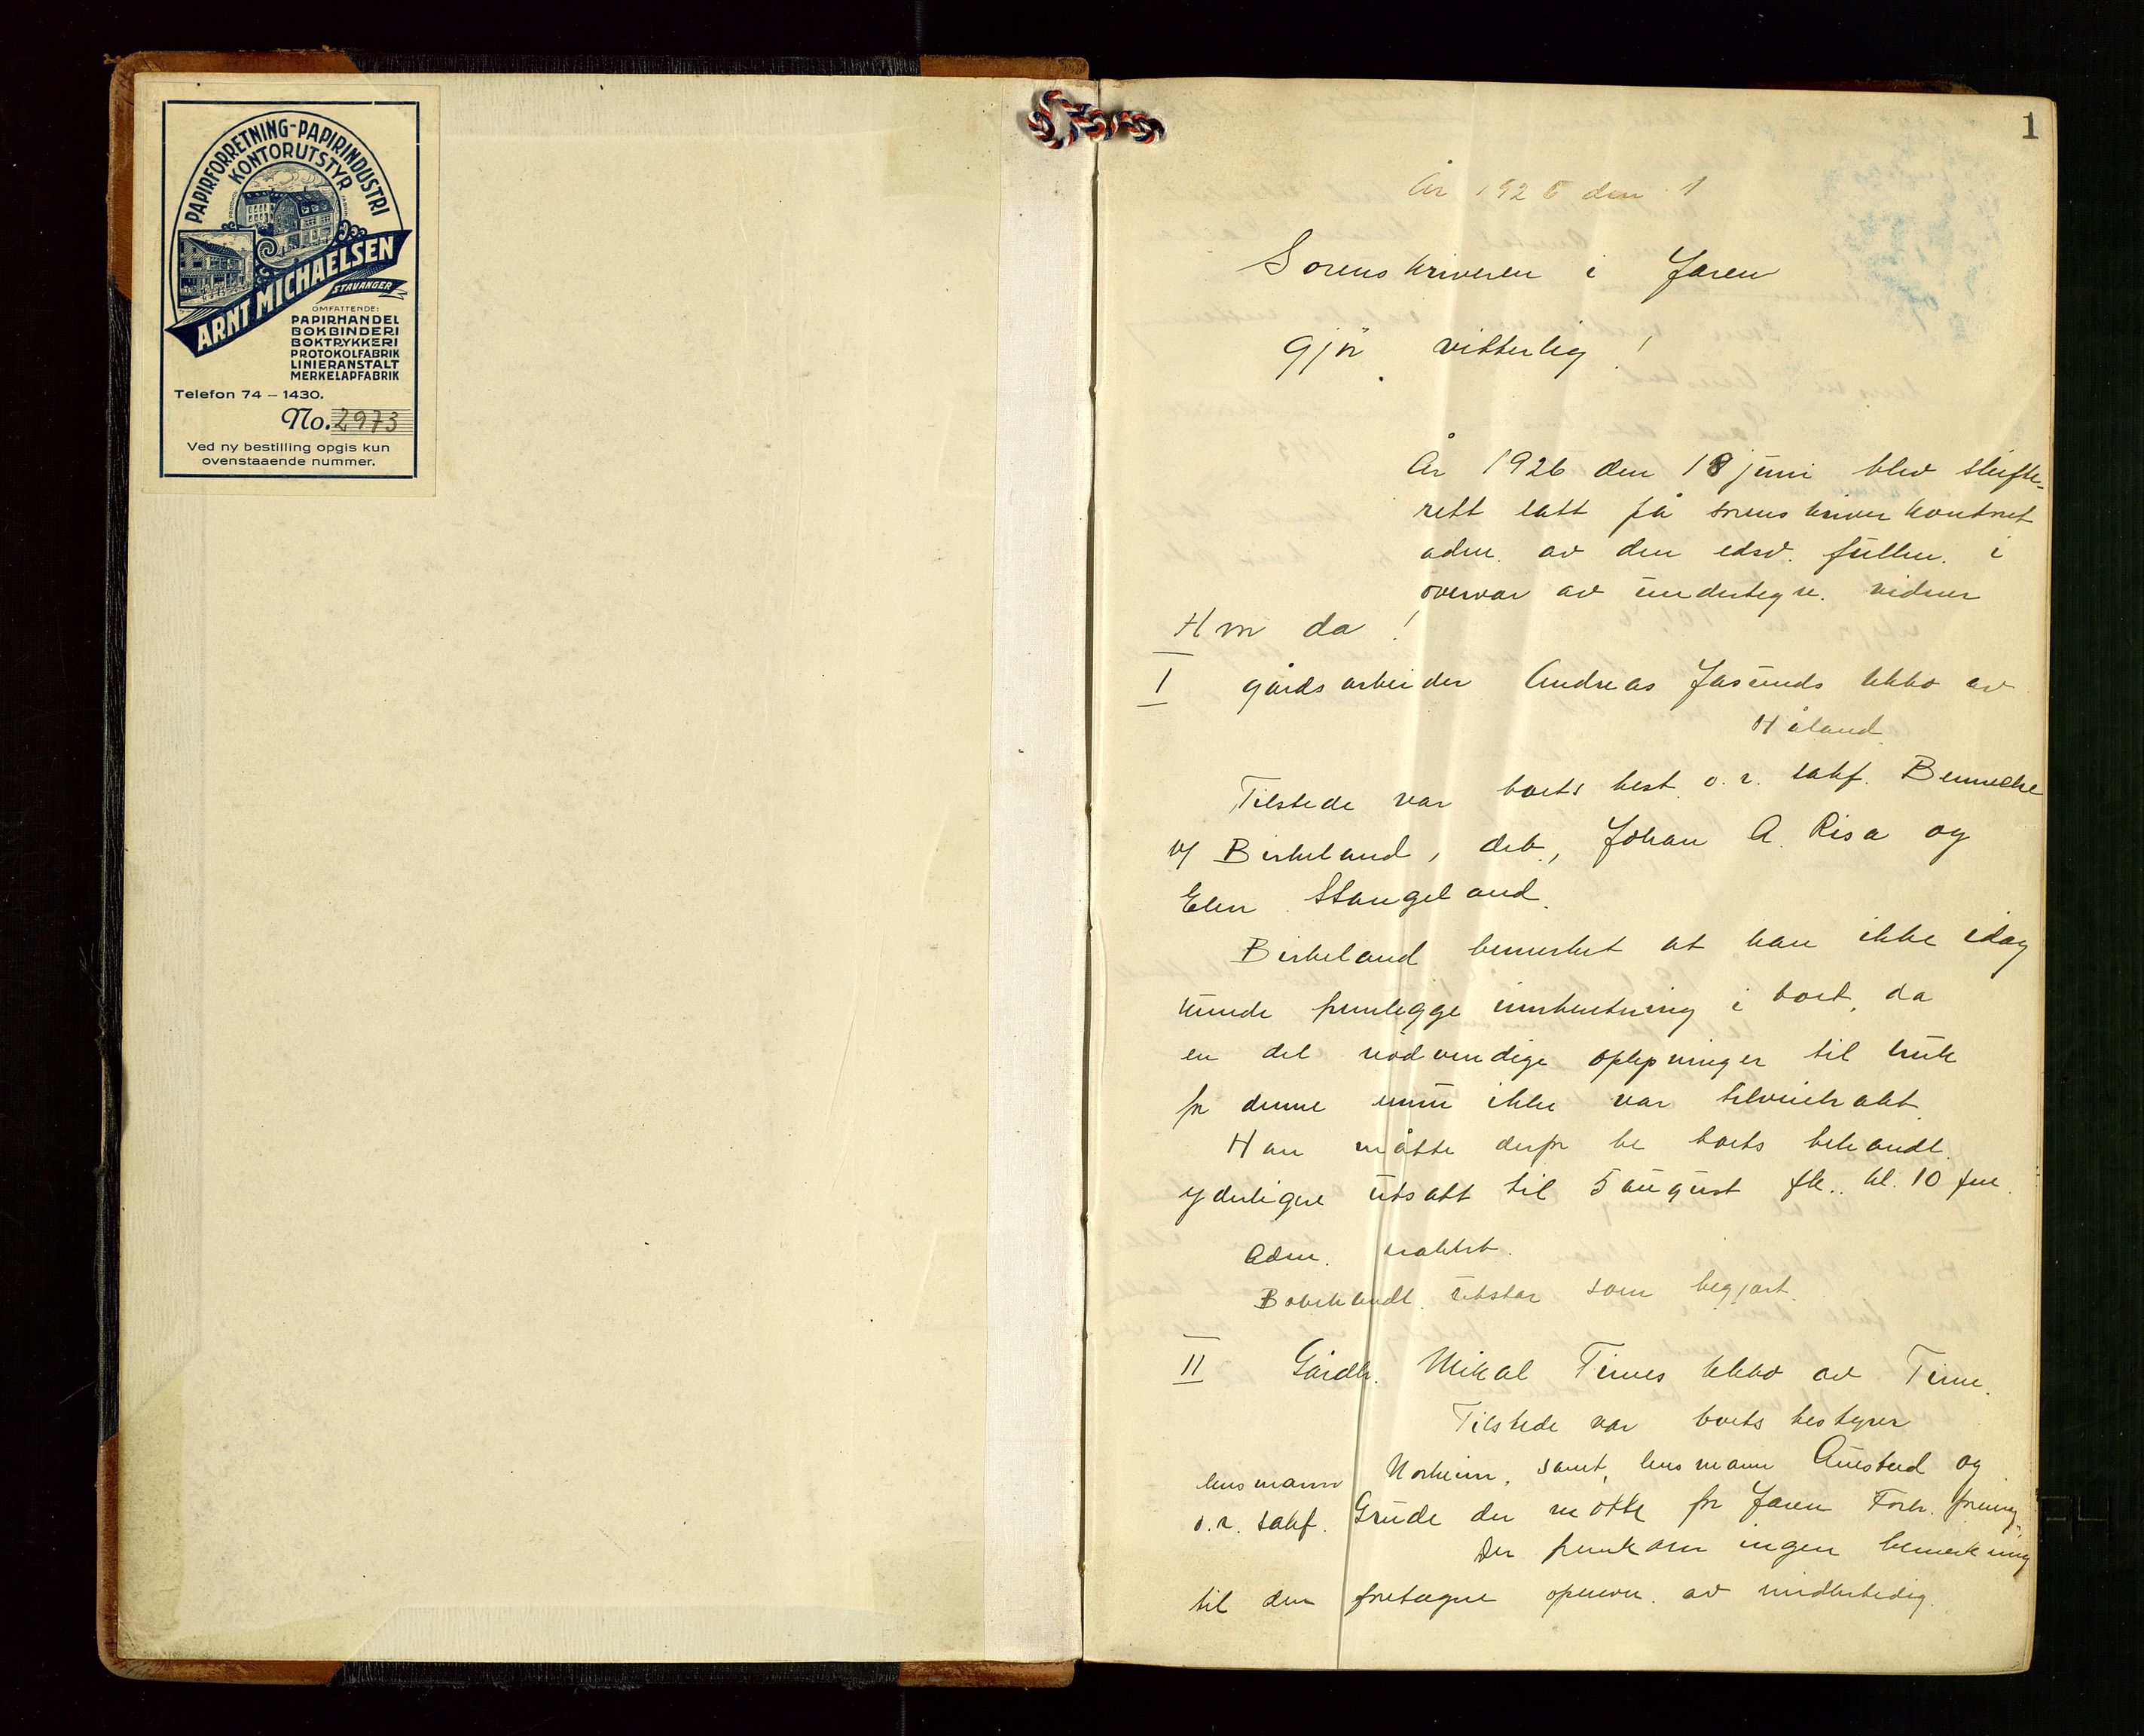 PAPIRFORRETNING-PAPIRINDUSTRI
KONTORUTSTYR
ARNT MICHAELSEN
STAVANGER
OMFATTENDE:
PAPIRHANDEL
BOKBINDERI
BOKTRYKKERI
PROTOKOLFABRIK
LINIERANSTALT
MERKELAPFABRIK
Telefon 74 – 1430.
No. 2973
Ved ny bestilling opgis kun
ovenstaaende nummer.
1
År 1926 den 1
Sorenskriveren i Jæren
gjör vitterlig!
År 1926 den 18 juni blev skifte-
rett satt på sorenskriverkontoret
adm. av den edsv. fullm. i
overvær av undertegn. vidner
Hvor da!
I gårdsarbeider Andreas Jåsunds kkbo av
Håland
Tilstede var boets best. o.r. sakf. Benneche
v/ Birkeland, deb., Johan A. Risa og
Elen Stangeland.
Birkeland bemerket at han ikke idag
kunde fremlegge innberetning i boet, da
en del nödvendige oplysninger til bruk
for denne ennu ikke var tilveiebrakt.
Han måtte derfor be boets behandl.
yderligere utsatt til 5 august fk. kl. 10 fm.
Adm. vedtok.
Bobehandl. utstår som begjært.
II Gårdbr. Mikal Times kkbo av Time.
Tilstede var boets bestyrer
lensmann Norheim, samt, lensmann Austad og
o.r. sakf. Grude der møtte for Jæren Forbr. forening.
Der fremkom ingen bemerkning
til den foretagne opnevn. av midlertidig